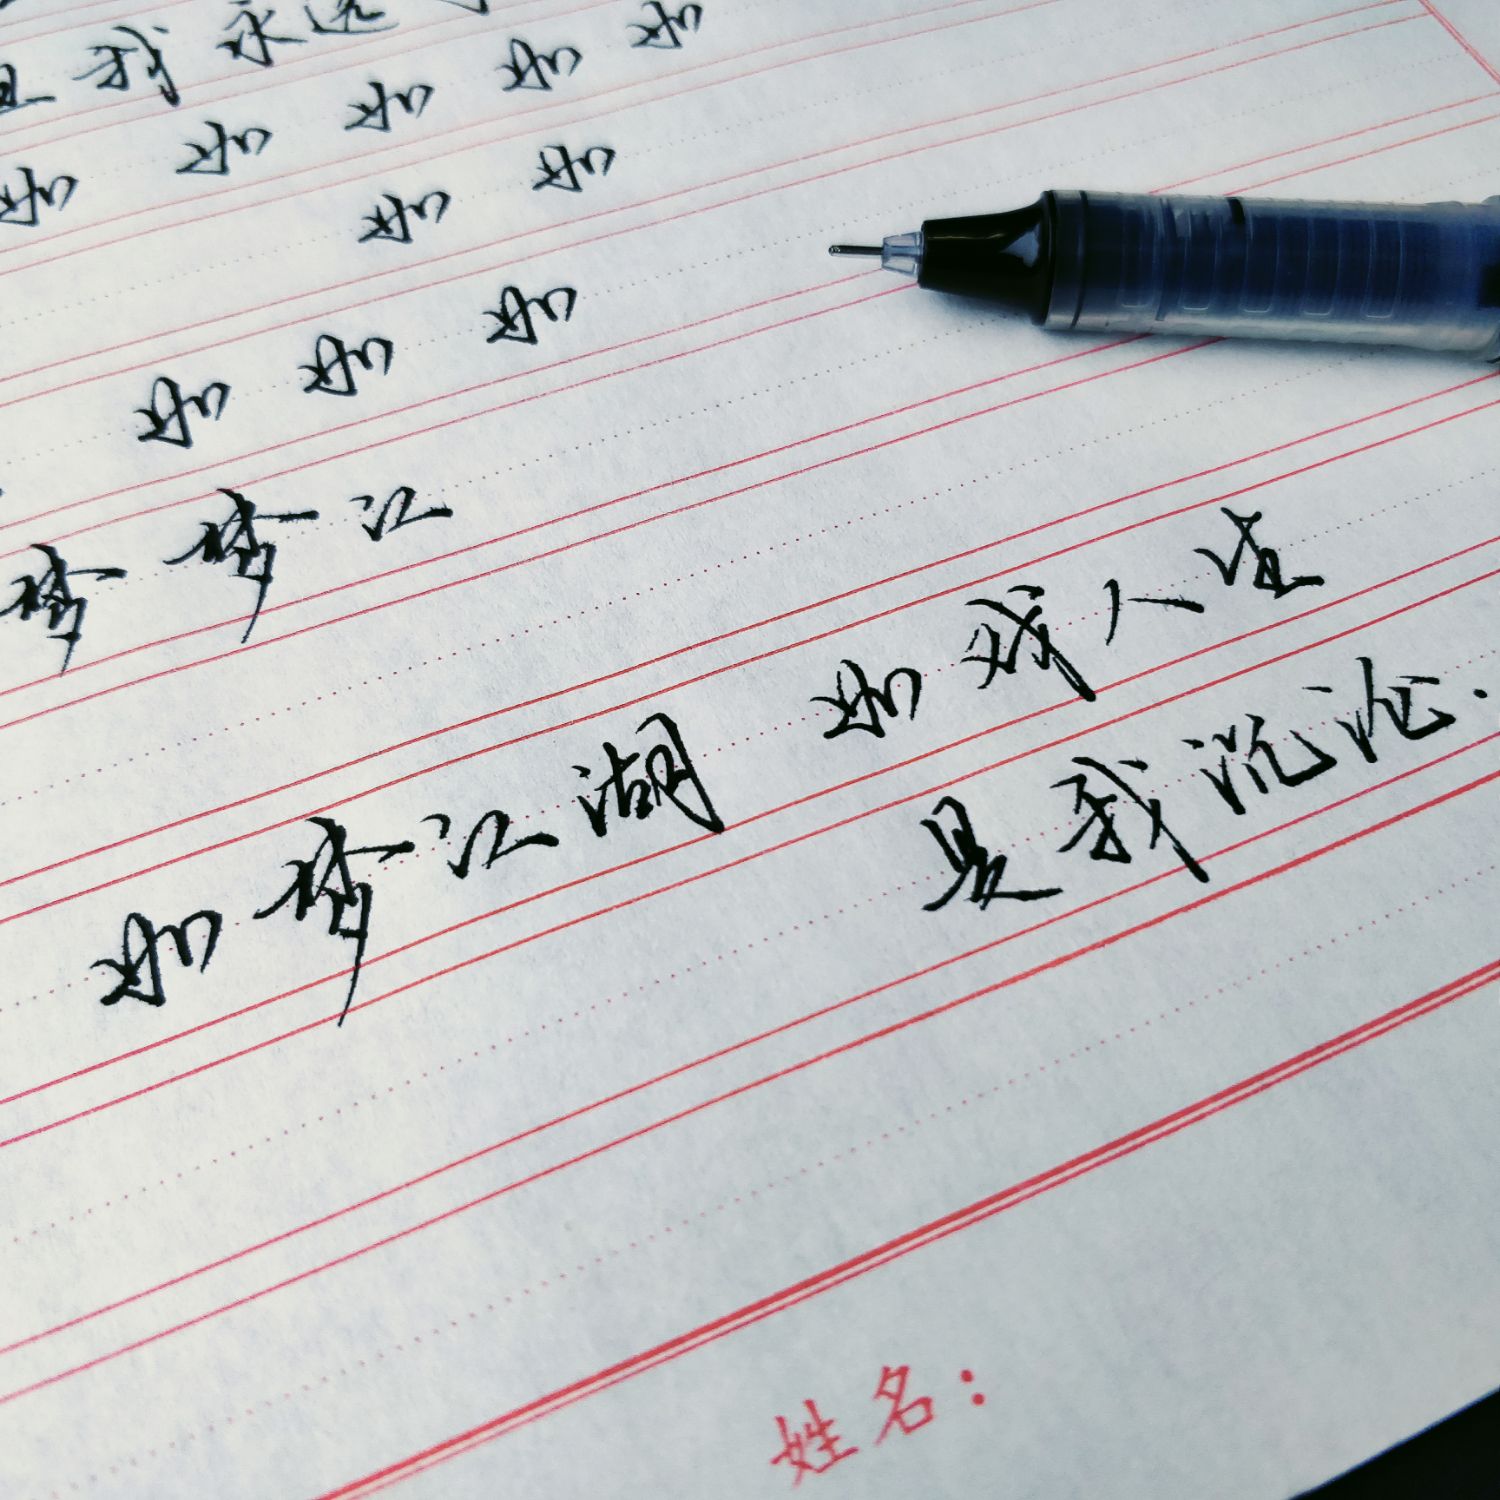 我永远
如 如 如 如 如
如 如
如 如 如
梦 梦 江
如梦江湖 如戏人生
是我沉沦.
姓名：